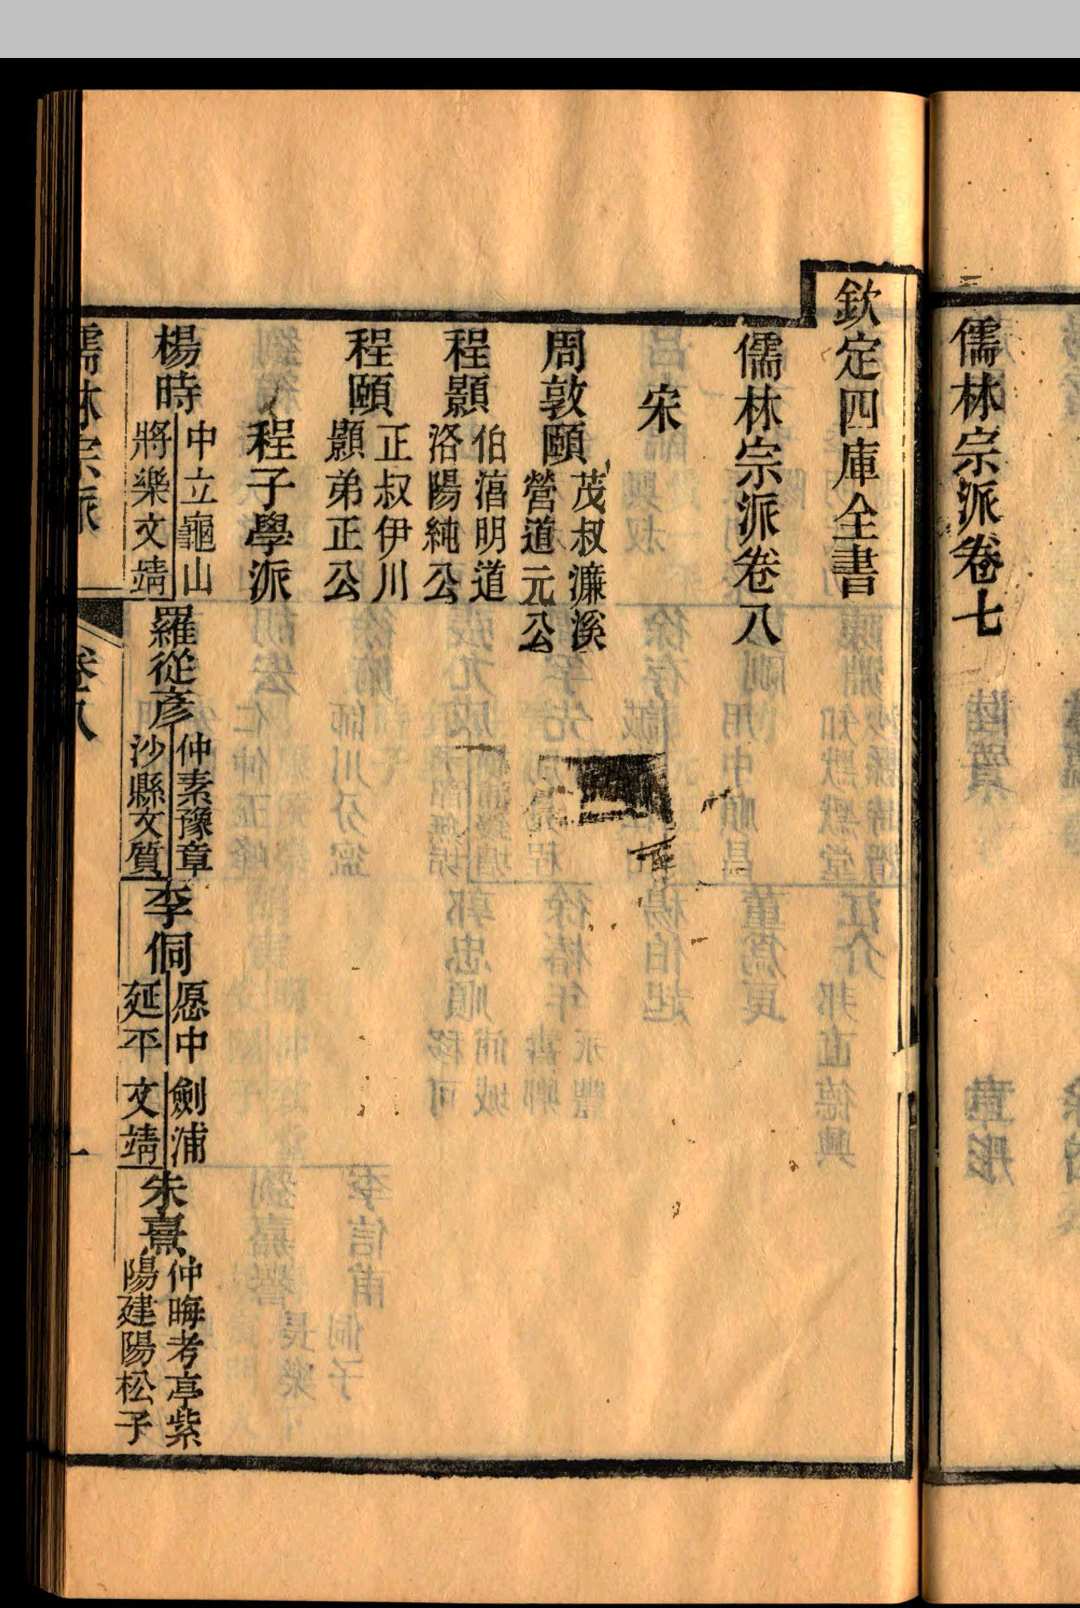 儒林宗派卷七
欽定四庫全書
儒林宗派卷八
宋
周敦頤 茂叔濂溪 營道元公
程顥 伯淳明道 洛陽純公
程頤 正叔伊川 顥弟正公
程子學派
楊時 中立龜山 將樂文靖 羅從彥 仲素豫章 沙縣文質 李侗 愿中劍浦 延平文靖 朱熹 仲晦考亭紫 陽建陽松子
儒林宗派 卷八 一